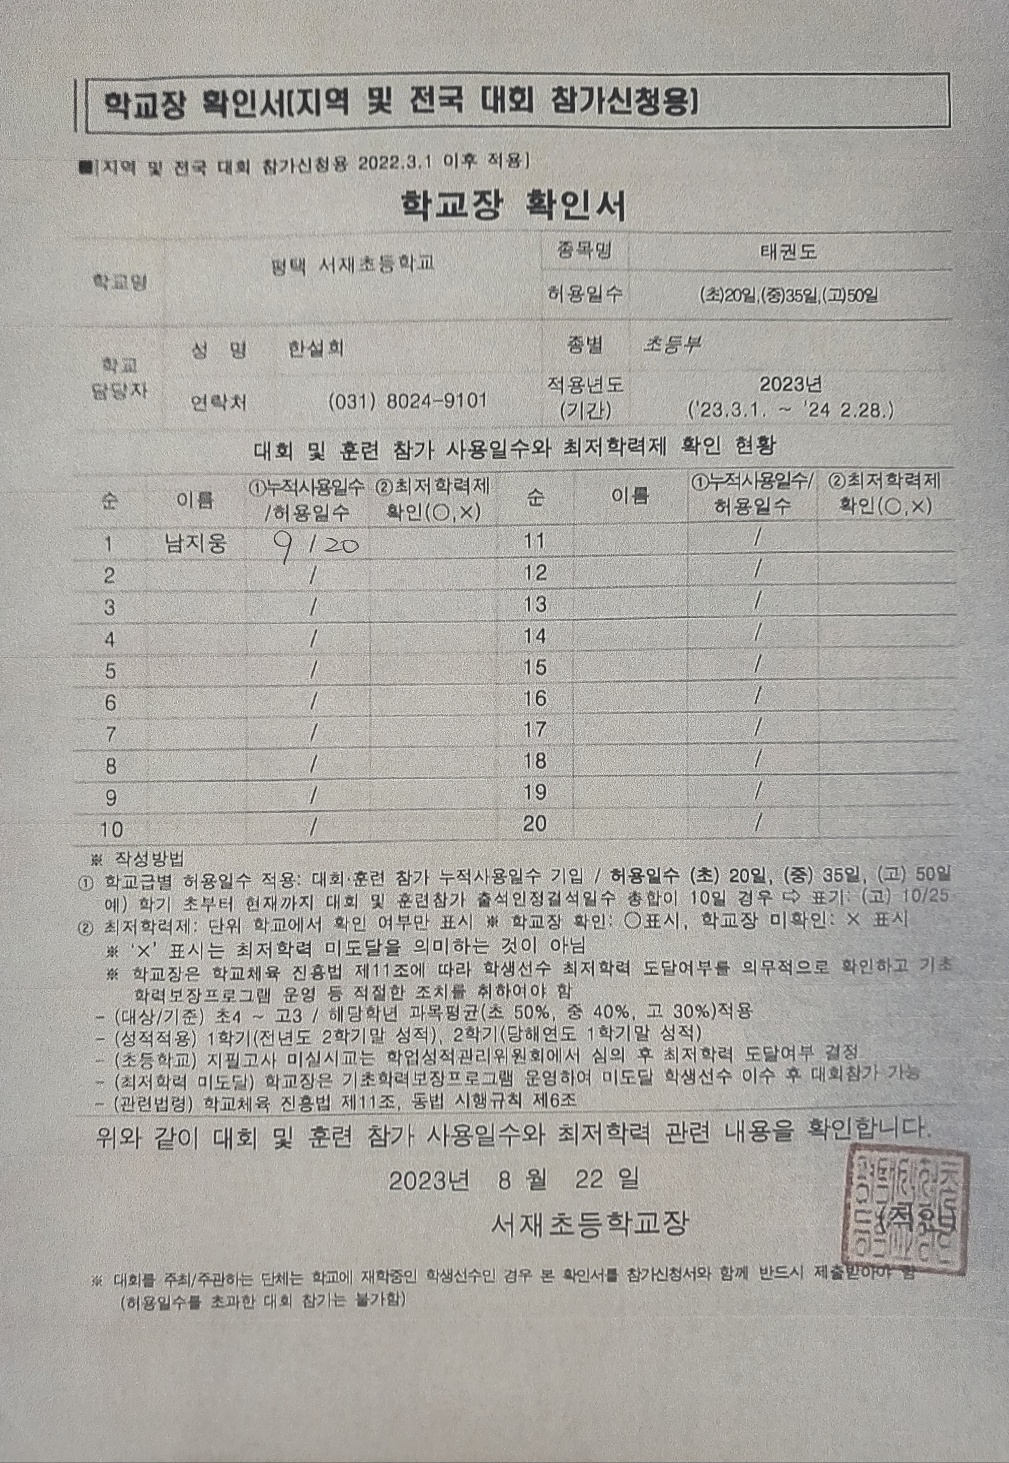 학교장 확인서(지역 및 전국 대회 참가신청용)
■[지역 및 전국 대회 참가신청용 2022.3.1 이후 적용]
학교장 확인서
학교명 평택 서재초등학교 종목명 태권도
허용일수 (초)20일,(중)35일,(고)50일
학교 담당자 성 명 한설희 종별 초등부
연락처 (031) 8024-9101 적용년도 (기간) 2023년 ('23.3.1. ~ '24 2.28.)
대회 및 훈련 참가 사용일수와 최저학력제 확인 현황
순 이름 ①누적사용일수 /허용일수 ②최저학력제 확인(○,×) 순 이름 ①누적사용일수/ 허용일수 ②최저학력제 확인(○,×)
1 남지웅 9 / 20 11 /
2 / 12 /
3 / 13 /
4 / 14 /
5 / 15 /
6 / 16 /
7 / 17 /
8 / 18 /
9 / 19 /
10 / 20 /
※ 작성방법
① 학교급별 허용일수 적용: 대회·훈련 참가 누적사용일수 기입 / 허용일수 (초) 20일, (중) 35일, (고) 50일
예) 학기 초부터 현재까지 대회 및 훈련참가 출석인정결석일수 총합이 10일 경우 ⇨ 표기: (고) 10/25
② 최저학력제: 단위 학교에서 확인 여부만 표시 ※ 학교장 확인: ○표시, 학교장 미확인: × 표시
※ '×' 표시는 최저학력 미도달을 의미하는 것이 아님
※ 학교장은 학교체육 진흥법 제11조에 따라 학생선수 최저학력 도달여부를 의무적으로 확인하고 기초
학력보장프로그램 운영 등 적절한 조치를 취하여야 함
- (대상/기준) 초4 ~ 고3 / 해당학년 과목평균(초 50%, 중 40%, 고 30%)적용
- (성적적용) 1학기(전년도 2학기말 성적), 2학기(당해연도 1학기말 성적)
- (초등학교) 지필고사 미실시교는 학업성적관리위원회에서 심의 후 최저학력 도달여부 결정
- (최저학력 미도달) 학교장은 기초학력보장프로그램 운영하여 미도달 학생선수 이수 후 대회참가 가능
- (관련법령) 학교체육 진흥법 제11조, 동법 시행규칙 제6조
위와 같이 대회 및 훈련 참가 사용일수와 최저학력 관련 내용을 확인합니다.
2023년 8 월 22 일
서재초등학교장 (직인)
※ 대회를 주최/주관하는 단체는 학교에 재학중인 학생선수인 경우 본 확인서를 참가신청서와 함께 반드시 제출받아야 함
(허용일수를 초과한 대회 참가는 불가함)